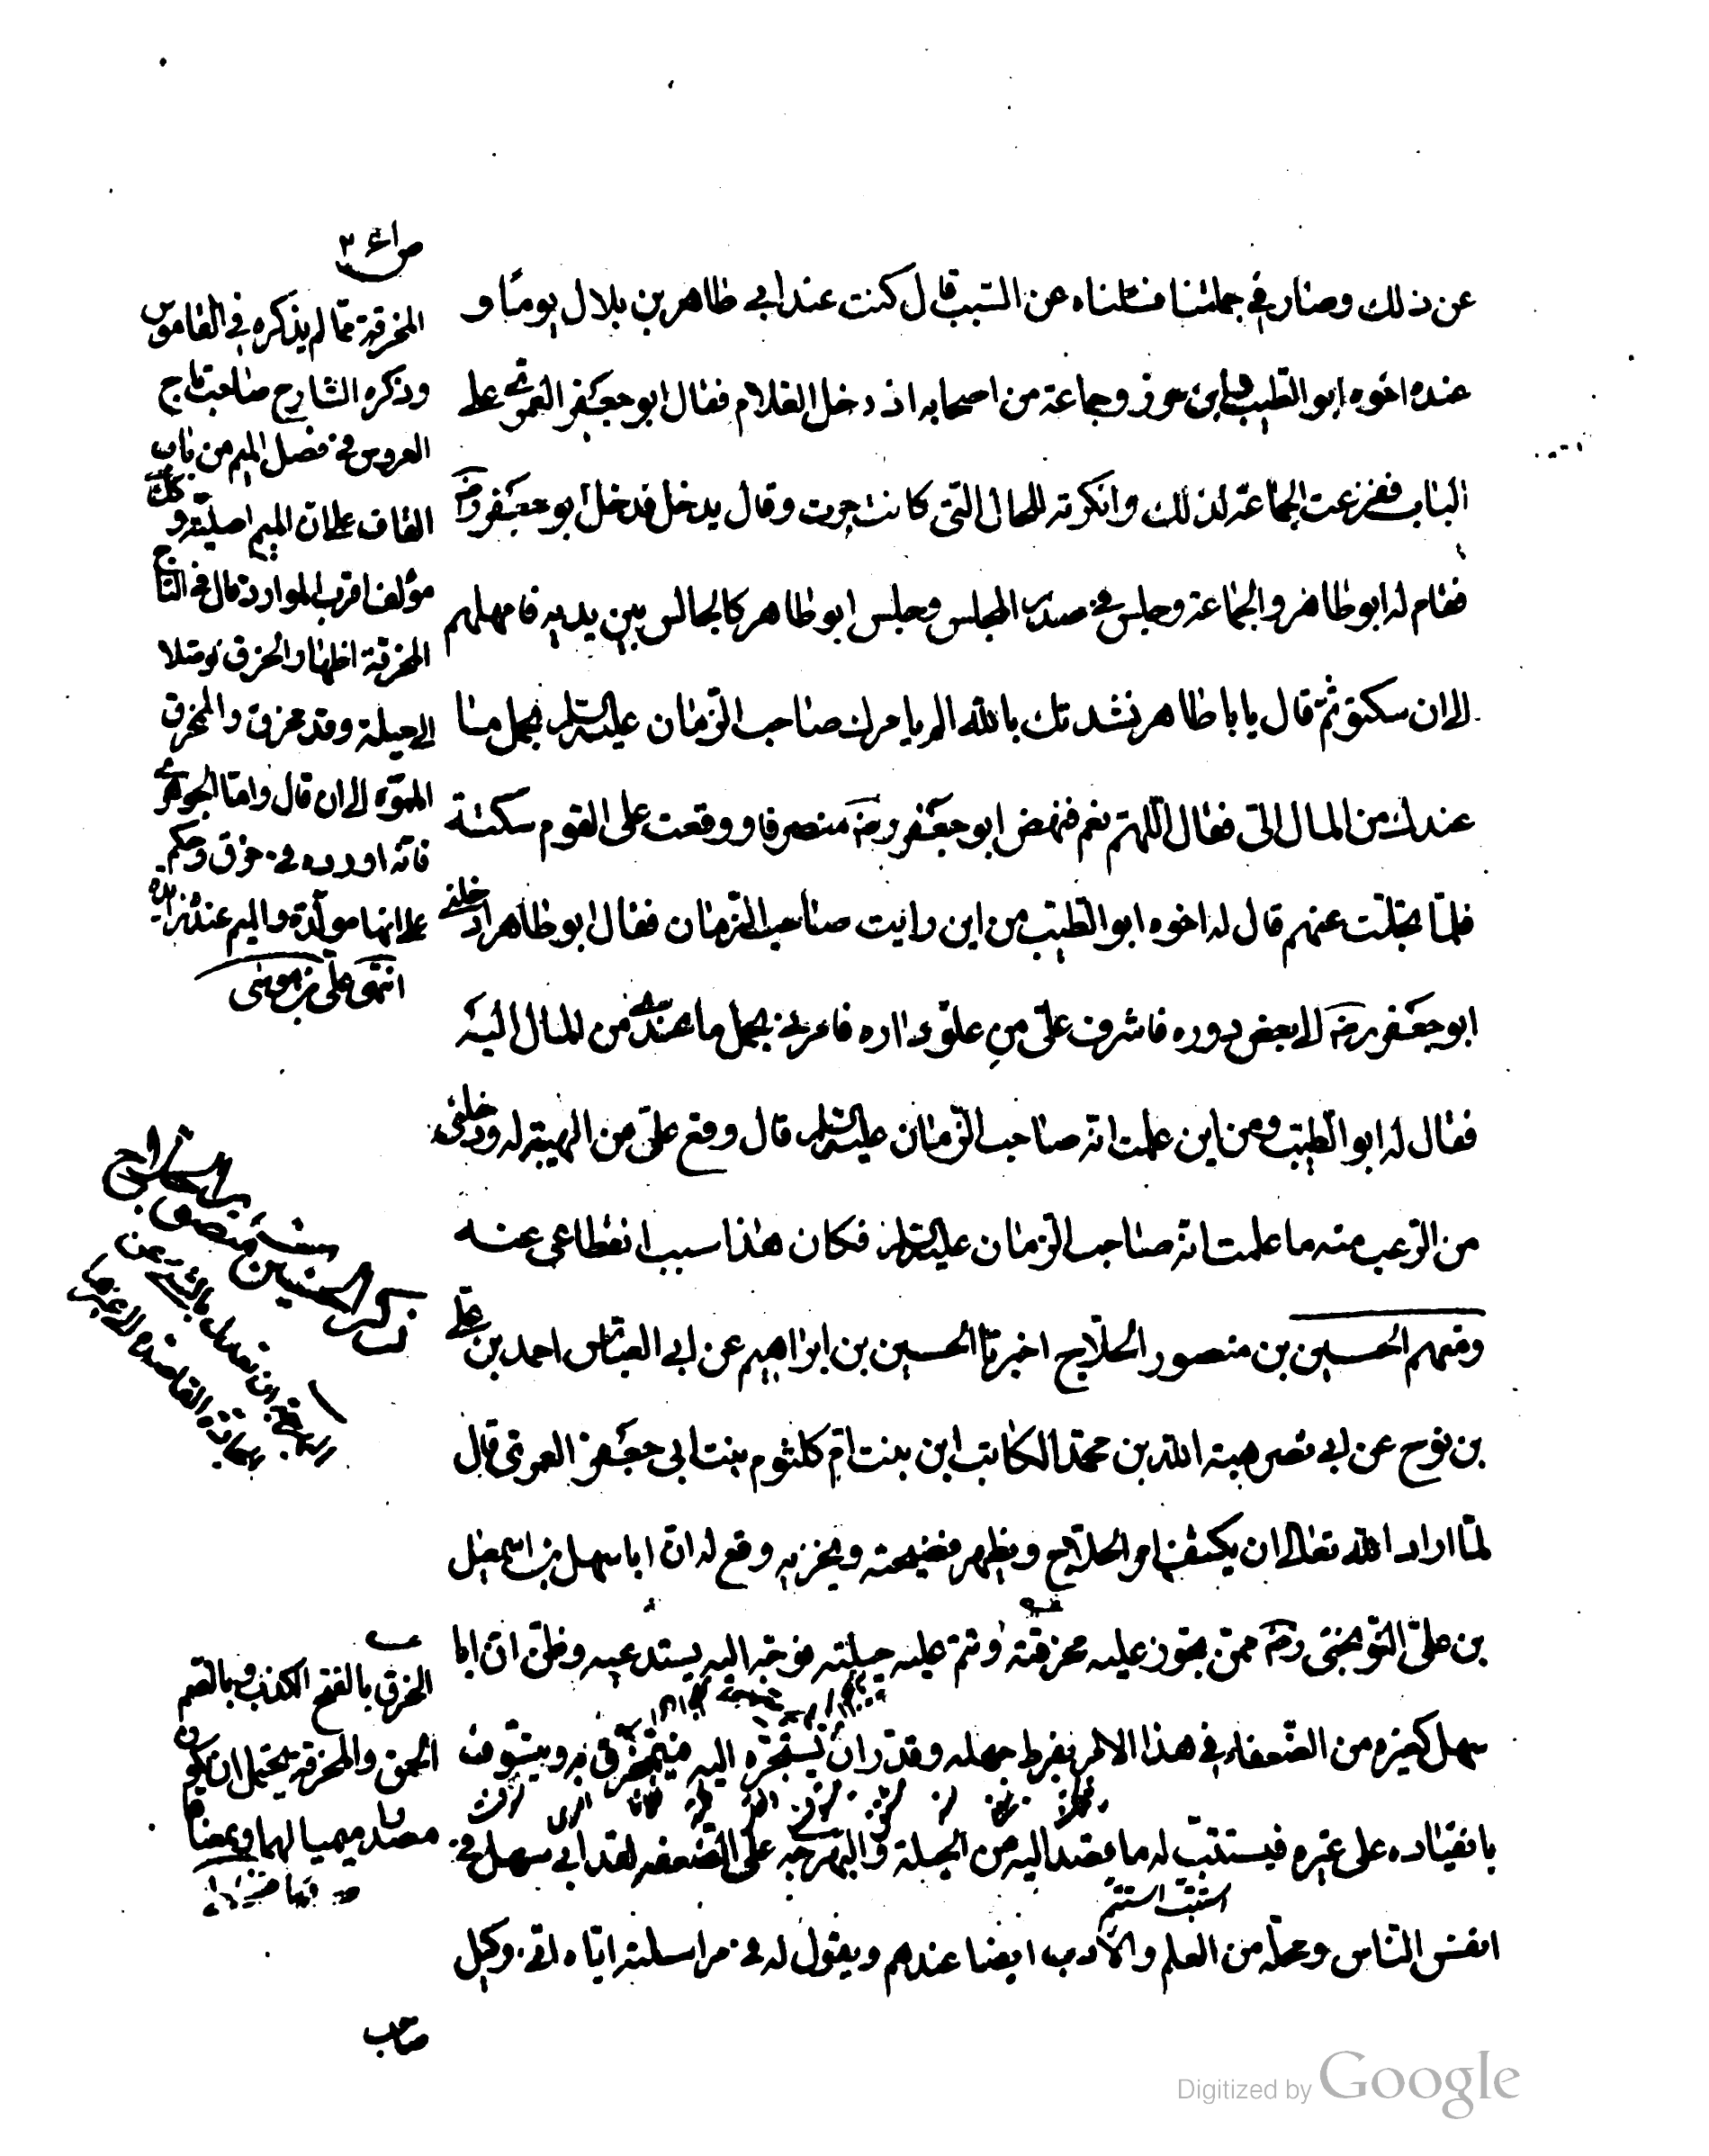 عن ذلك وصار في جملتنا فسئلناه عن السبب قال كنت عند ابي طاهر بن بلال يوما و
عنده اخوه ابو الطيب و ابن حرز وجماعة من اصحابه اذ دخل الغلام فقال ابو جعفر العمرى على
الباب ففزعت الجماعة لذلك وانكرته للحال التى كانت جرت وقال يدخل فدخل ابو جعفر رضه
فقام له ابو طاهر والجماعة وجلس في صدر المجلس وجلس ابو طاهر كالجالس بين يديه فامهلهم
الى ان سكتوا ثم قال يا ابا طاهر نشدتك بالله الم يامرك صاحب الزمان عليه السلام بحمل ما
عندك من المال الى فقال اللهم نعم فنهض ابو جعفر رضه منصرفا ووقعت على القوم سكتة
فلما تجلت عنهم قال له اخوه ابو الطيب من اين رايت صاحب الزمان فقال ابو طاهر ادخلنى
ابو جعفر رضه الى بعض دوره فاشرف علىّ من علو داره فامرنى بحمل ما عندى من المال اليه
فقال له ابو الطيب ومن اين علمت انه صاحب الزمان عليه السلام قال وقع علىّ من الهيبة له ودخلنى
من الرعب منه ما علمت انه صاحب الزمان عليه السلام فكان هذا سبب انقطاعى عنه
ومنهم الحسين بن منصور الحلاج اخبرنا الحسين بن ابراهيم عن ابي العباس احمد بن على
بن نوح عن ابي نصر هبة الله بن محمد الكاتب ابن بنت ام كلثوم بنت ابى جعفر العمرى قال
لما اراد الله تعالى ان يكشف امر الحلاج ويظهر فضيحته ويخزيه وقع له ان ابا سهل بن اسمعيل
بن علىّ النوبختى رضه ممن تجوز عليه مخرقته وتتم عليه حيلته فوجه اليه يستدعيه وظن ان ابا
سهل كغيره من الضعفاء في هذا الامر بفرط جهله وقدر ان يستجره اليه فيتمخرق به ويتسوف
بانقياده على غيره فيستتب له ما قصد اليه من الحيلة والبهرجة على الضعفه لقدر ابى سهل في
انفس الناس ومحله من العلم والادب ايضا عندهم ويقول له في مراسلته اياه انى وكيل
صاحب
المخرقة مما لم يذكره في القاموس
وذكره الشارح صاحب تاج
العروس في فصل الميم من باب
القاف على ان الميم اصلية وكك
مؤلف اقرب الموارد قال في التاج
المخرقة اظهار الخرق توصلا
الى حيلة وقد مخرق والممخرق
المموّه الى ان قال واما الجوهرى
فانه اورده في خرق وحكم
على انها مولدة والميم عنده زائدة
انتهى على بن موسى
ذكر الحسين بن منصور
الخرق بالفتح الكذب وبالضم
الحمق والمخرقة يحتمل ان يكون
مصدر ميميا لهما
استتب استتم